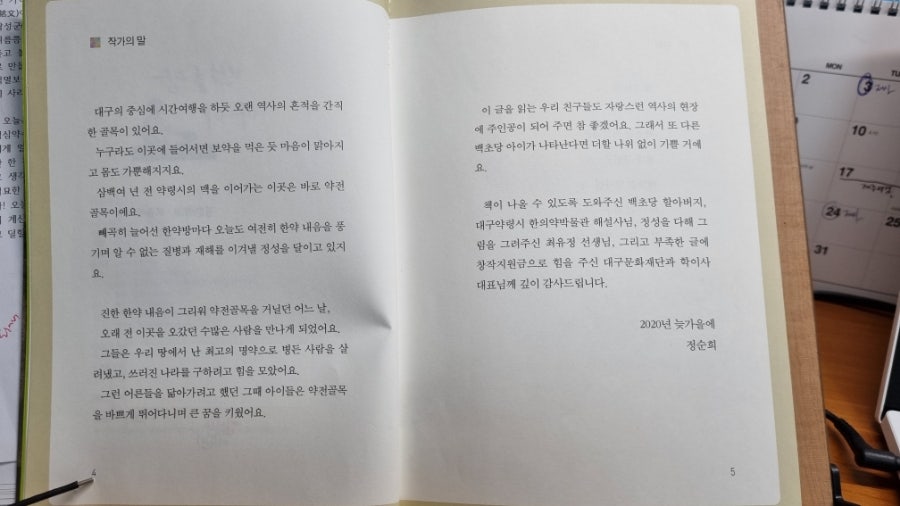 작가의 말
대구의 중심에 시간여행을 하듯 오랜 역사의 흔적을 간직
한 골목이 있어요.
누구라도 이곳에 들어서면 보약을 먹은 듯 마음이 맑아지
고 몸도 가뿐해지지요.
삼백여 년 전 약령시의 맥을 이어가는 이곳은 바로 약전
골목이에요.
빼곡히 늘어선 한약방마다 오늘도 여전히 한약 내음을 풍
기며 알 수 없는 질병과 재해를 이겨낼 정성을 달이고 있지
요.
진한 한약 내음이 그리워 약전골목을 거닐던 어느 날,
오래 전 이곳을 오갔던 수많은 사람을 만나게 되었어요.
그들은 우리 땅에서 난 최고의 명약으로 병든 사람을 살
려냈고, 쓰러진 나라를 구하려고 힘을 모았어요.
그런 어른들을 닮아가려고 했던 그때 아이들은 약전골목
을 바쁘게 뛰어다니며 큰 꿈을 키웠어요.
4
이 글을 읽는 우리 친구들도 자랑스런 역사의 현장
에 주인공이 되어 주면 참 좋겠어요. 그래서 또 다른
백초당 아이가 나타난다면 더할 나위 없이 기쁠 거예
요.
책이 나올 수 있도록 도와주신 백초당 할아버지,
대구약령시 한의약박물관 해설사님, 정성을 다해 그
림을 그려주신 최유정 선생님, 그리고 부족한 글에
창작지원금으로 힘을 주신 대구문화재단과 학이사
대표님께 깊이 감사드립니다.
2020년 늦가을에
정순희
5
MON
2
3
10
17
24
31